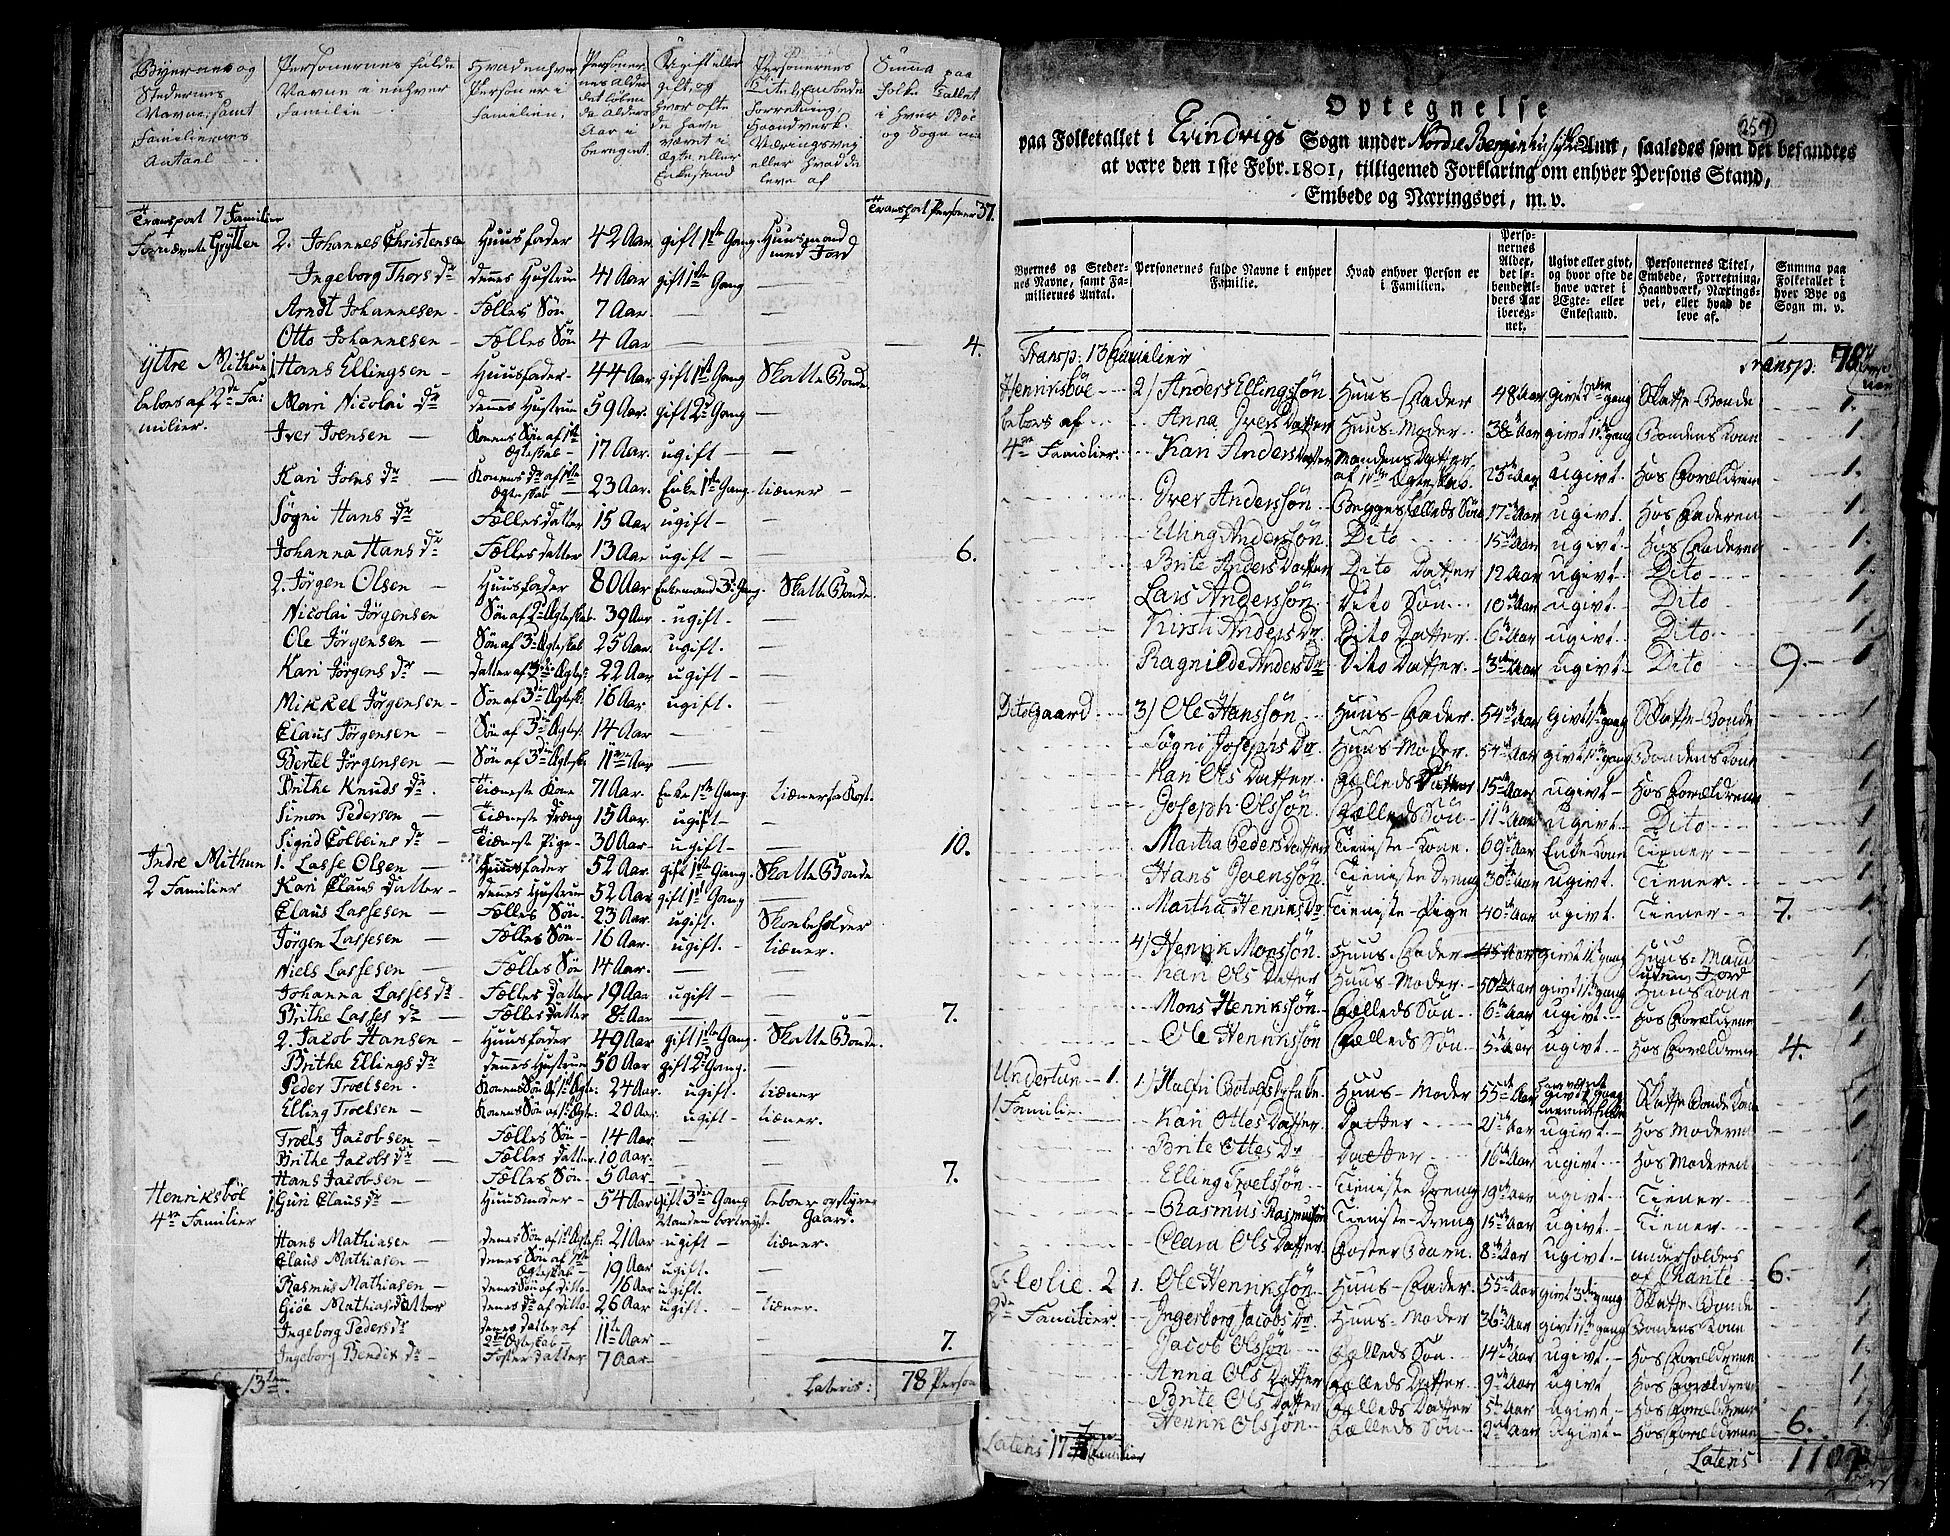 Byernes og Stedernes Navne, samt Familiernes Antael
Personernes fulde Navne i enhver Familie
Hvad enhver Person er i Familien.
Personernes Alder det løbende Alders Aar i beregnet
Ugift eller gift, og hvor ofte de have været i Ægte eller Enkestand
Personernes Titel, Embede Forretning, Haandverk, Næringsvej eller hvad de leve af
Summa paa Folke Tallet i hver Bye og Sogn m.v.
Transport 7 Familier Transport Personer 37.
Fornævnte Grytten 2. Johannes Christensen Huusfader 42 Aar gift 1ste Gang Huusmand med Jord
Ingeborg Thors Dr dennes Hustrue 41 Aar gift 1ste Gang —
Arndt Johannesen - Fælles Søn 7 Aar — —
Otto Johannesen - Fælles Søn 4 Aar — — 4.
Yttre Mithun 1. Hans Ellingsen - Huusfader - 44 Aar gift 1ste Gang Skatte Bonde
beboes af 2de Fa- Mari Nicolai Dr dennes Hustrue 59 Aar gift 2d Gang —
milier. Iver Joensen — Konens Søn af 1ste Ægteskab — 17 Aar ugift — —
Kari Johns Dr — Konens Dr af 1ste Ægteskab 23 Aar. Enke 1ste Gang. tiæner —
Søgni Hans Dr Fælles datter 15 Aar ugift — —
Johanna Hans Dr Fælles datter 13 Aar ugift — — 6.
2. Jørgen Olsen — Huusfader 80 Aar Enkemand 3d Gang. Skatte Bonde.
Nicolai Jørgensen Søn af 2d Ægteskab 39 Aar. ugift. —
Ole Jørgensen — Søn af 3d Ægteskab 25 Aar. ugift. —
Kari Jørgens Dr — datter af 3die Ægtesk: 22 Aar ugift — —
Mikkel Jørgensen - Søn af 3de Ægtesk. 16 Aar ugift. —
Claus Jørgensen — Søn af 3de Ægtesk. 14 Aar —
Bertel Jørgensen — Søn af 3die Ægtesk. 11 Aar —
Brithe Knuds Dr. Tiæneste Kone 71 Aar. Enke 1ste Gang. tiæner for Kost.
Simon Pedersen — Tiæneste dræng 15 Aar. ugift — —
Sigrid Colbeins Dr Tiæneste Pige 30 Aar. ugift — — 10.
Indre Mithun 1. Lasse Olsen — Huusfader 52 Aar. gift 1ste Gang. Skatte Bonde
2 Familier Kari Claus datter - dennes Hustrue 52 Aar gift 1st Gang —
Claus Lassesen — Fælles Søn 23 Aar. ugift. Skonbeholder
Jørgen Lassesen Fælles Søn 16 Aar. ugift. tiæner.
Niels Lassesen — Fælles Søn 14 Aar. —
Johanna Lasses Dr Fælles datter 19 Aar ugift — —
Brithe Lasses Dr — Fælles datter 8 Aar — — 7.
2. Jacob Hansen — Huusfader 49 Aar gift 1ste Gang. Skatte Bonde.
Brithe Ellings Dr dennes Hustrue 50 Aar gift 2d Gang. —
Peder Troelsen. Konens Søn af 1st Ægte: 24 Aar. ugift. tiæner
Elling Troelsen — Konens Søn af 1st Ægte: 20 Aar. ugift — tiæner.
Troels Jacobsen — Fælles Søn — 14 Aar. —
Brithe Jacobs Dr — Fælles datter 10 Aar — —
Hans Jacobsen — Fælles Søn 5 Aar. — 7.
Henriksböe 1. Guri Claus Dr — Huusmoder - 54 Aar gift 3die Gang Manden bortrejst. beboer og styrer Gaard.
4re Familier
Hans Mathiasen — denes Søn af 1st Ægtesk. 21 Aar ugift — tiæner.
Claus Mathiasen — denes Søn af 1ste Ægteskab — 19 Aar ugift. —
Rasmus Mathiasen — denes Søn af ditto 16 Aar ugift. —
Giøe Mathiasdatter denes Dr af ditto 26 Aar ugift. — tiæner.
Ingeborg Peders Dr denes datter af 2det Ægteskab — 11 Aar — —
Ingeborg Bendix Dr — Foster datter 7 Aar — — 7.
13ten. Lateris: 78 Person
Optegnelse (259)
paa Folketallet i Evindvigs Sogn under Nordre Bergenhusiske Amt, saaledes som det befandtes
at være den 1ste Febr. 1801, tilligemed Forklaring om enhver Persons Stand,
Embede og Næringsvei, m. v.
Byernes og Stedernes Navne, samt Familiernes Antal.
Personernes fulde Navne i enhver Familie.
Hvad enhver Person er i Familien.
Personernes Alder, det løbende Alders Aar iberegnet.
Ugivt eller givt, og hvor ofte de have været i Ægte- eller Enkestand.
Personernes Titel, Embede, Forretning, Haandværk, Næringsvei, eller hvad de leve af.
Summa paa Folketallet i hver Bye og Sogn m. v.
Transp: 13 Familier transp: 78
Henriksböe 2) Anders Ellingssön Huus-Fader 48 Aar Givt gang Skatte-Bonde 1.
beboes af Anna Ivers Datter Huus-Moder 38 Aar givt 1ste gang Bondens Kone 1.
4re Familier. Kari Anders Datter Mandens Datter af 1ste Ægteskab. 23 Aar ugivt. Hos Forældrene 1.
Iver Anderssön Begges Fælleds Sön 17 Aar ugivt. Hos Faderen 1.
Elling Anderssön Dito 15 Aar ugivt. Hos Faderen 1.
Brite Anders Datter Dito Datter 12 Aar ugivt Dito 1
Lars Anderssön Dito Sön 10 Aar ugivt. Dito 1
Kirsti Anders Dr. Dito Datter 6 Aar ugivt Dito 1
Ragnilde Anders Dr Dito Datter. 3 Aar ugivt Dito 9. 1
Dito gaard 3) Ole Hanssön Huus-Fader. 54 Aar Givt 1ste gang Skatte-Bonde 1
Søgni Josephs Dr Huus-Moder. 54 Aar givt 1ste gang Bondens Kone 1.
Kari Ols Datter Fælleds Datter 15 Aar ugivt Hos Forældrene 1.
Joseph Olssön Fælleds Sön 11 Aar ugivt. Dito 1.
Martha Peders Datter Tieniste-Kone. 69 Aar Enke Kone Tiener 1.
Hans Joenssön Tieniste Dreng 30 Aar ugivt. Tiener. 1.
Martha Henriks Dr Tieniste-Pige 40 Aar ugivt. Tiener 7. 1.
4) Henrik Monssön. Huus-Fader 45 Aar givt 1st gang Huus-Mand uden Jord 1.
Kari Ols Datter Huus-Moder 50 Aar givt 1ste gang Huus Kone 1.
Mons Henrikssön Fælleds Sön 6 Aar ugivt Hos Forældrene 1.
Ole Henrikssön Fælleds Sön 5 Aar ugivt Hos Forældrene 4. 1.
Undertun — 1. 1) Malfri Botolfs Huus-Moder 55 Aar Skatte Bonde Kone 1.
1 Familie. Kari Ottes Datter. Datter 21 Aar ugivt. Hos Moderen 1.
Brite Ottes Dr Datter 16 Aar ugivt Hos Moderen 1.
Elling Troelssön Tieniste Dreng 19 Aar ugivt Tiener 1.
Rasmus Rasmussön Tieniste-Dreng 15 Aar ugivt. Tiener 1.
Clara Ols Datter. Foster Barn. 8 Aar ugivt. underholdes af Chante 6. 1.
Flolie. 2 1. Ole Henrikssön Huus-Fader 55 Aar givt 3die gang Skatte-Bonde 1
2de Familier Ingerborg Jacobs Dr Huus-Moder 36 Aar givt 1ste gang Bondens Kone 1
Jacob Olssön Fælleds Sön 14 Aar ugivt. Hos Forældrene 1
Anna Ols Datter Fælleds Datter. 9 Aar ugivt Hos Forældrene 1
Brite Ols Datter Fælleds Datter 5 Aar ugivt Hos Forældrene 1
Henrik Olssön Fælleds Sön 2 Aar Ugivt Hos Forældrene 6. 1
Lateris 17 Familier Lateris 110